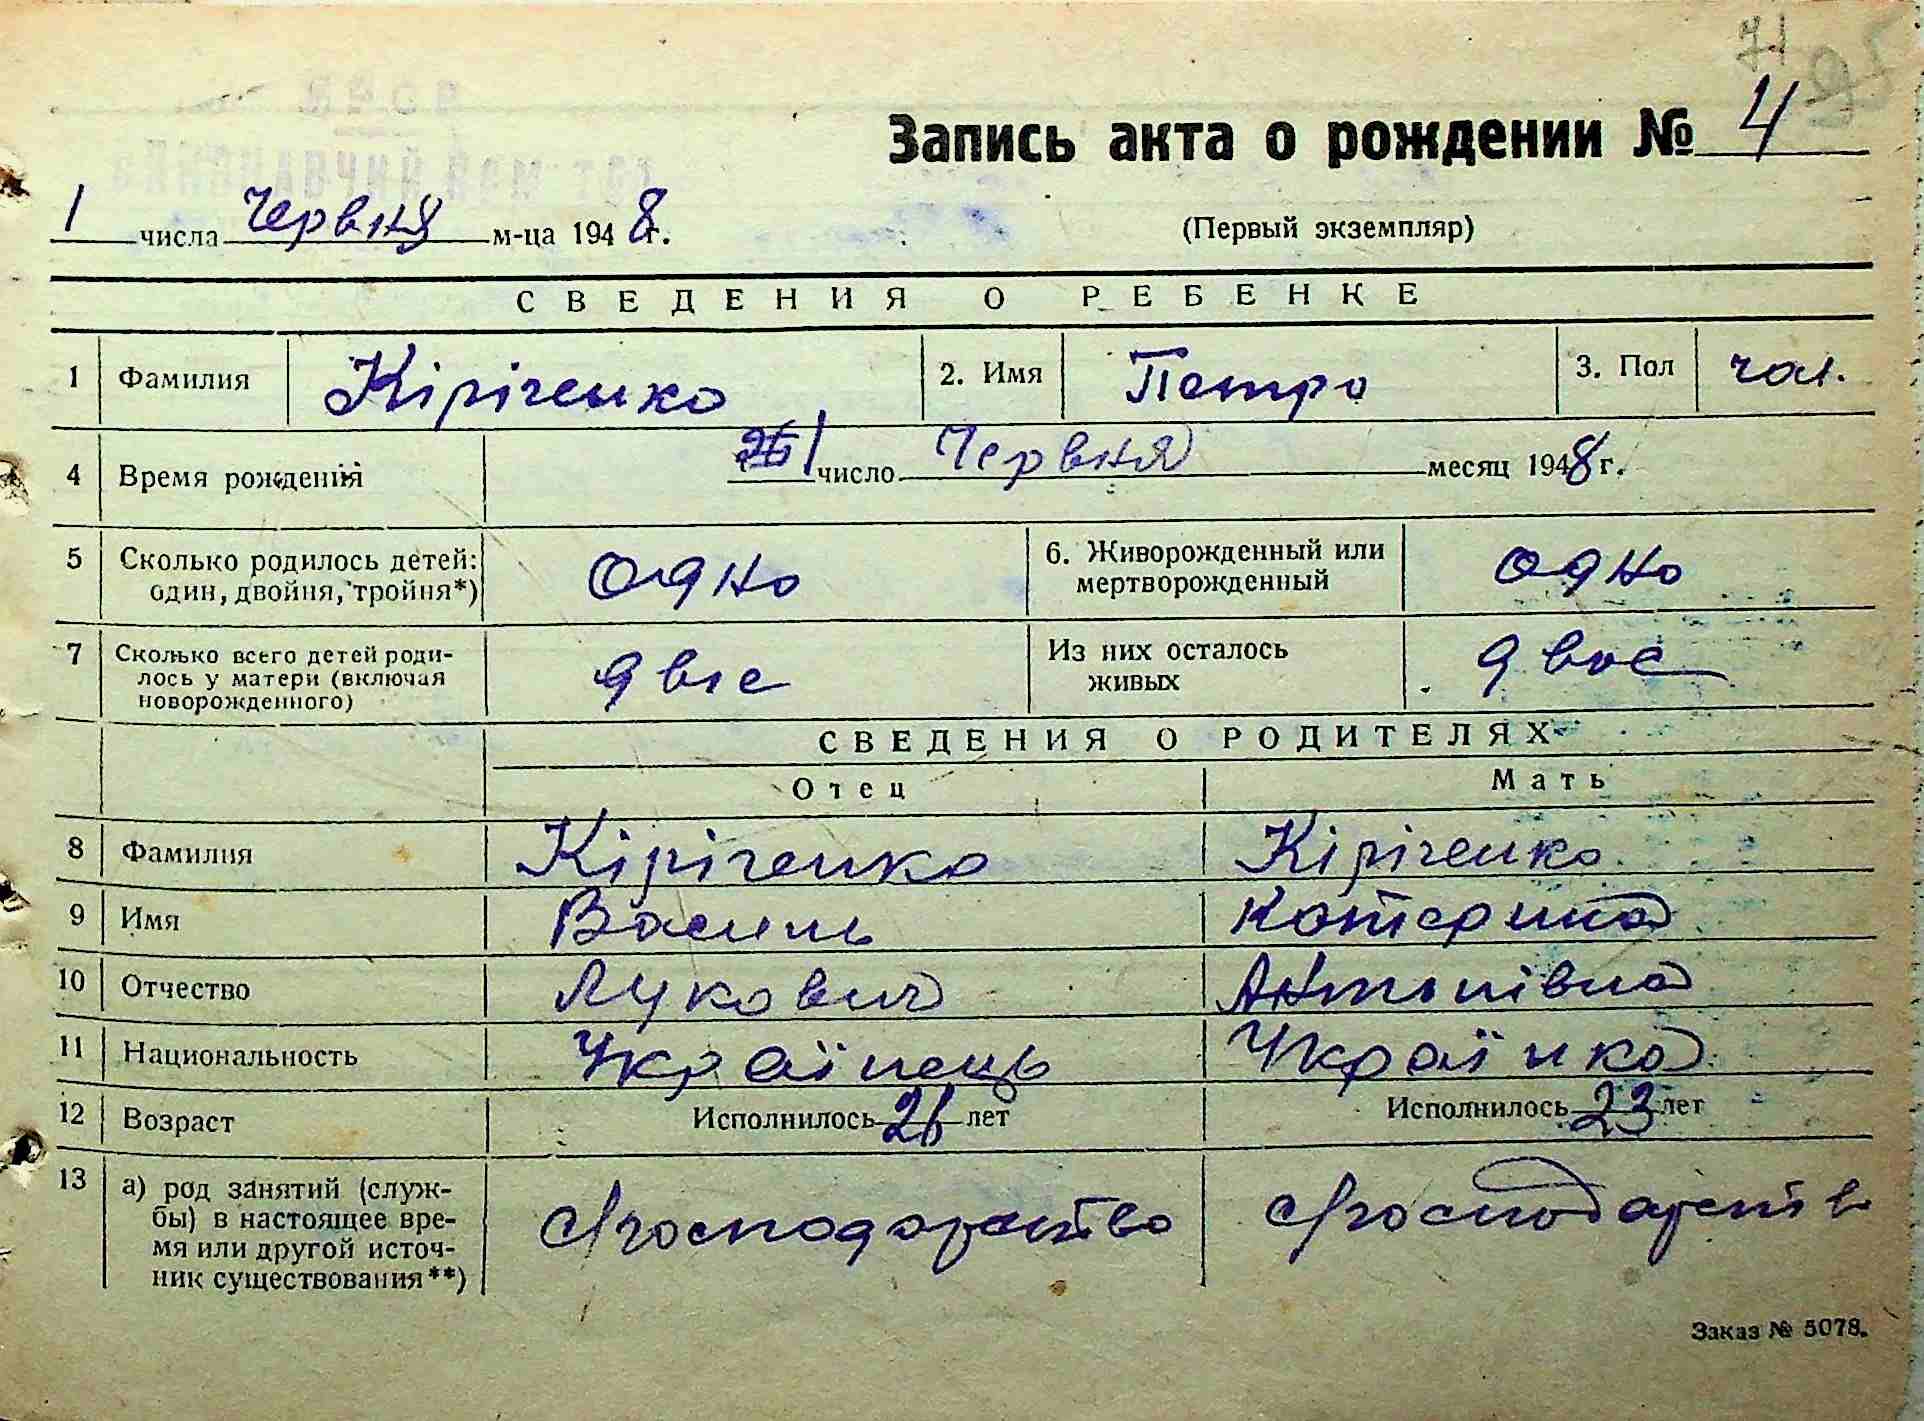 71
Запись акта о рождении № 4
1 числа Червня м-ца 1948 г.
(Первый экземпляр)
СВЕДЕНИЯ О РЕБЕНКЕ
1 Фамилия Кіріченко 2. Имя Петро 3. Пол чол.
4 Время рождения 1 число Червня месяц 1948 г.
5 Сколько родилось детей: один, двойня, тройня*) одно 6. Живорожденный или мертворожденный одно
7 Сколько всего детей родилось у матери (включая новорожденного) двоє Из них осталось живых двоє
СВЕДЕНИЯ О РОДИТЕЛЯХ
Отец Мать
8 Фамилия Кіріченко Кіріченко
9 Имя Василь Катерина
10 Отчество Лукович Антонівна
11 Национальность Українець Українка
12 Возраст Исполнилось 26 лет Исполнилось 23 лет
13 а) род занятий (служ-
бы) в настоящее вре-
мя или другой источ-
ник существования**)
Заказ № 5078.